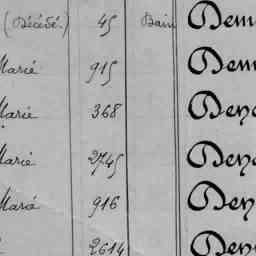 (Décédé.) 45 Bain Dem
Marié 915 Dem
Marié 368 Den
Marié 2745 Den
Marié 916 Den
2614 Den